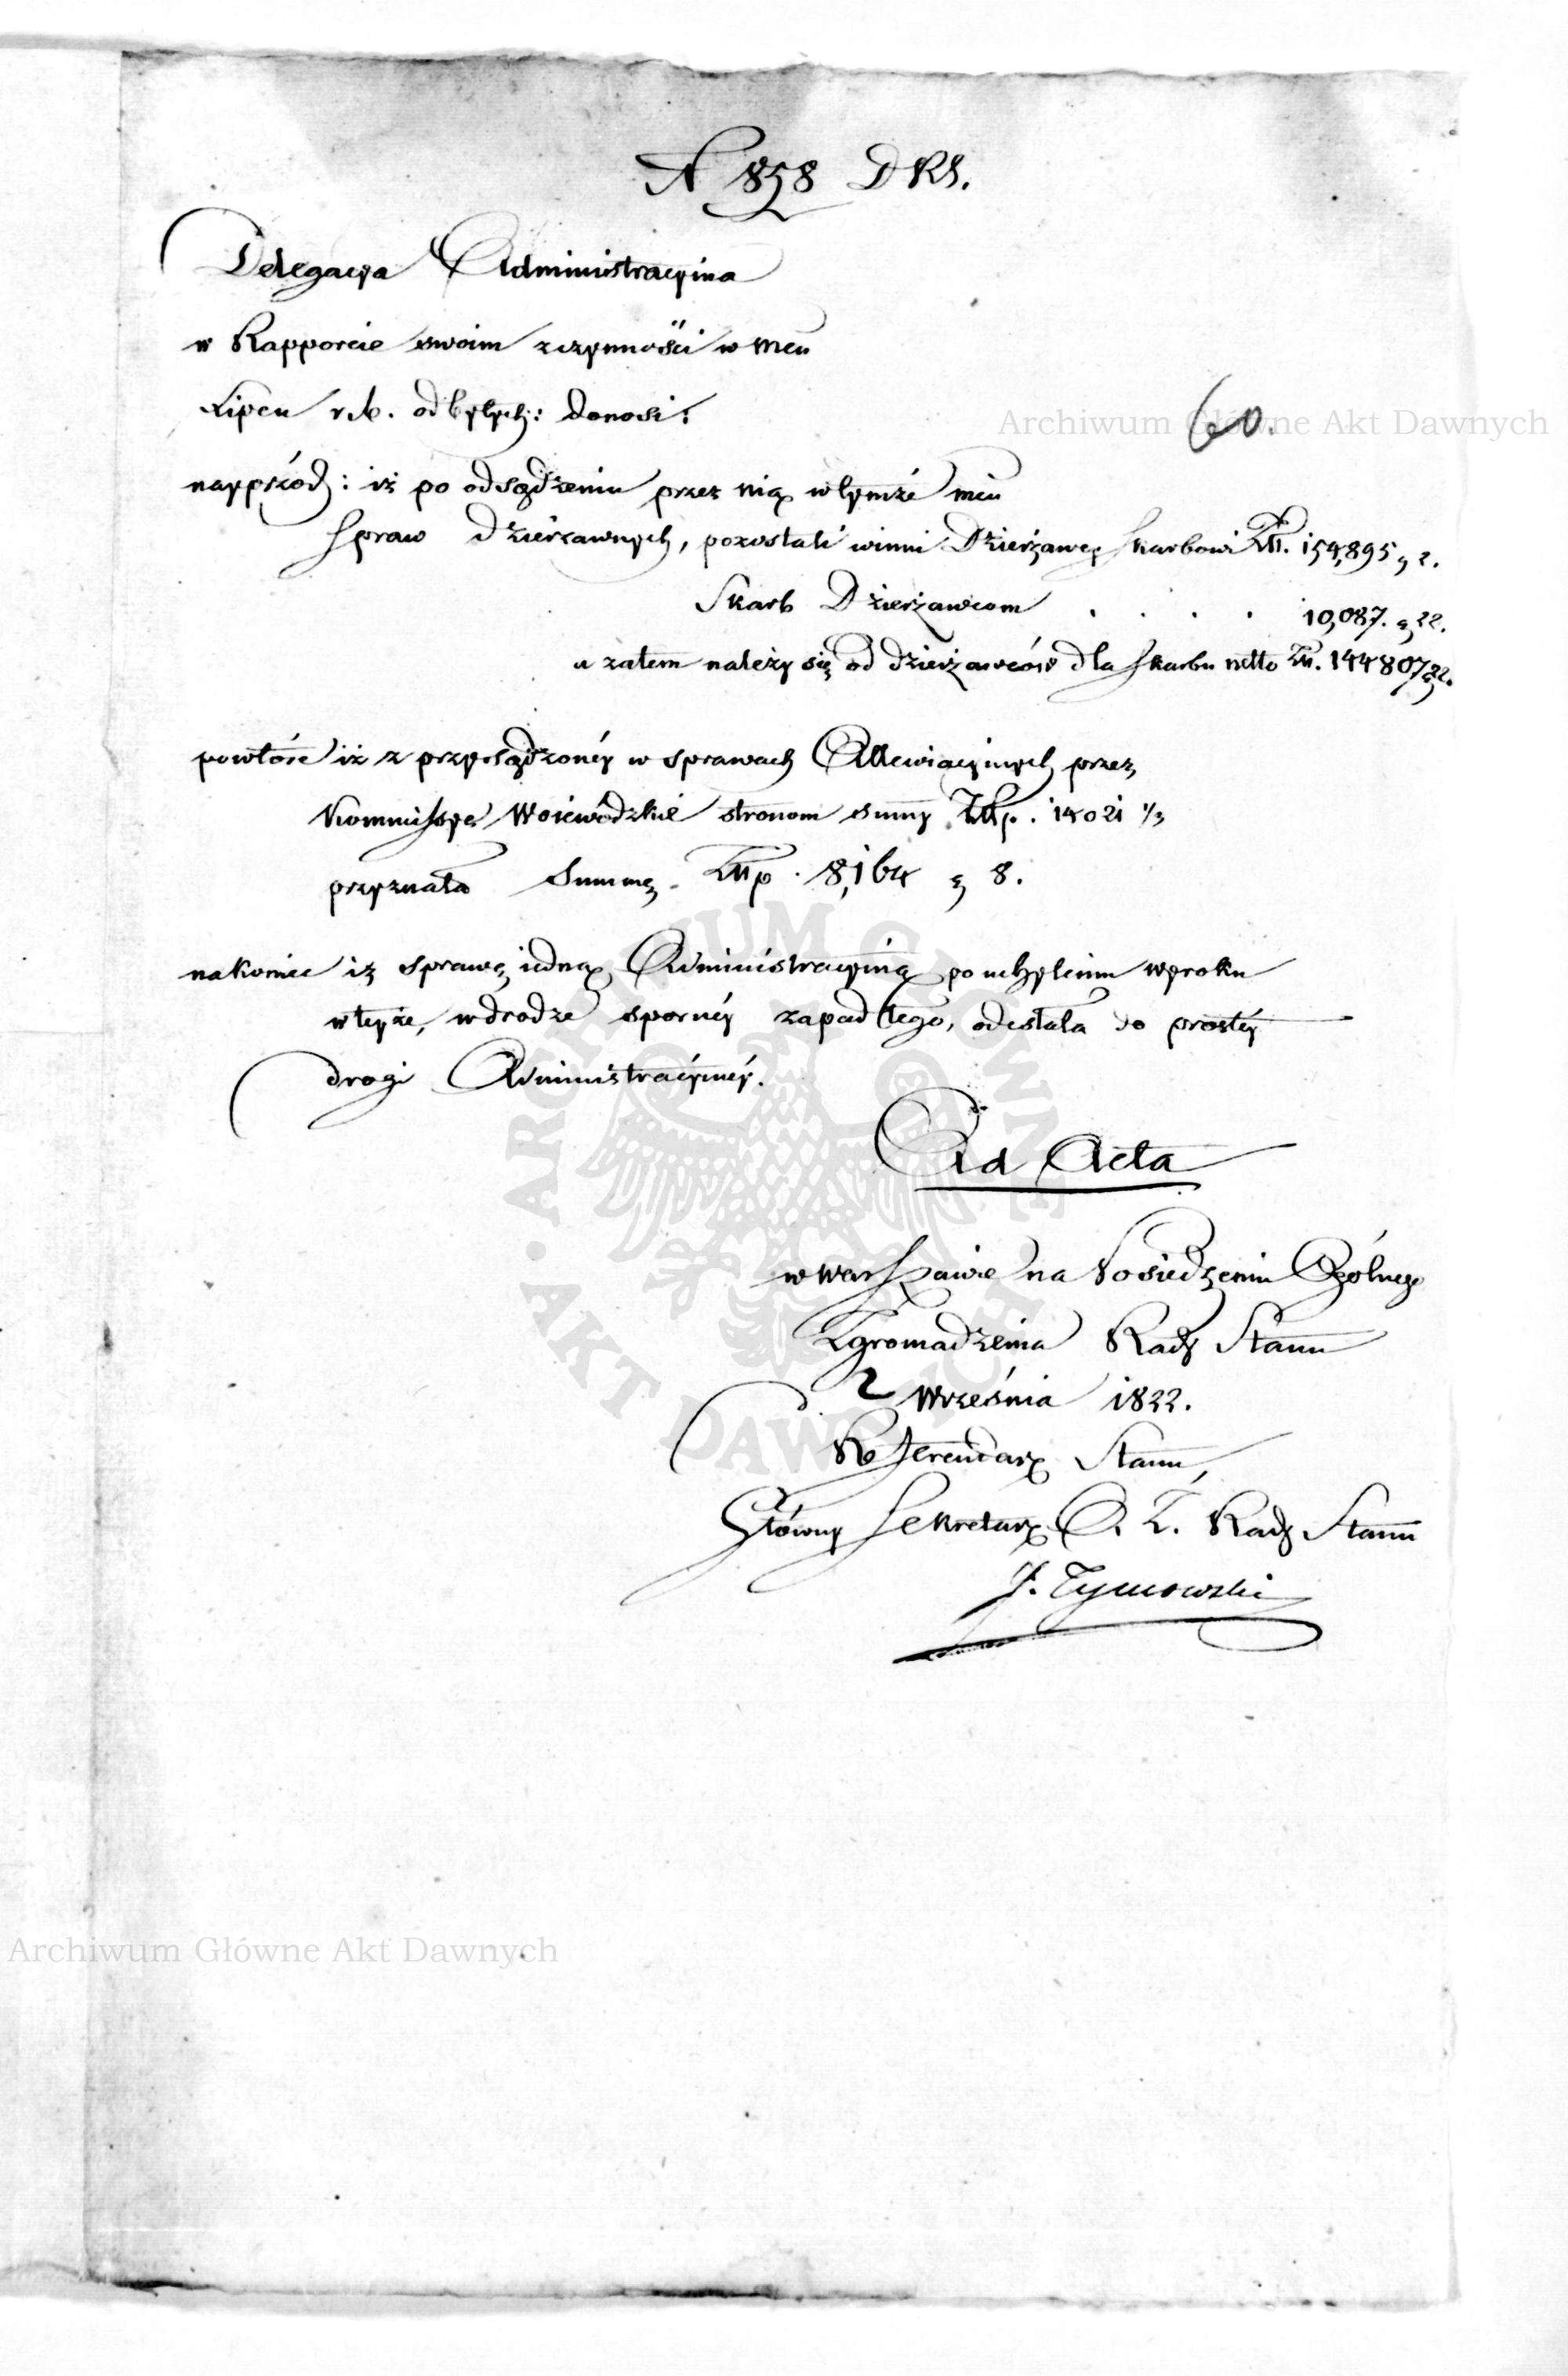 N 858 DRS.
Delegacya Administracyina
w Rapporcie swoim z czynności w mcu
Lipcu r.b. odbytych: donosi:
60.
nayprzód: iż po odsądzeniu przez nią w tymże mcu
spraw dzierżawnych, pozostali winni Dzierżawcy Skarbowi Złł. 154,895 g 2.
Skarb Dzierżawcom . . . . 10,087. g 22.
a zatem należy się od dzierżawców dla Skarbu netto Złł. 144807 g 22.
powtóre iż z przysądzonéy w sprawach Allewiacyinych przez
Kommissye Woiewódzkie stronom summy Złłp. 14021 1/3
przyznała Summę Złłp. 8,164 g 8.
nakoniec iż sprawę iedną Administracyiną po uchyleniu wyroku
w teyże, w drodze sporney zapadłego, odesłała do prostéy
drogi Administracyinéy.
Ad Acta
w Warszawie na Posiedzeniu Ogólnego
Zgromadzenia Rady Stanu
d. 2 Września 1822.
Referendarz Stanu,
Główny Sekretarz O. Z. Rady Stanu
J. Tymowski
Archiwum Główne Akt Dawnych
Archiwum Główne Akt Dawnych
ARCHIWUM GŁÓWNE
AKT DAWNYCH